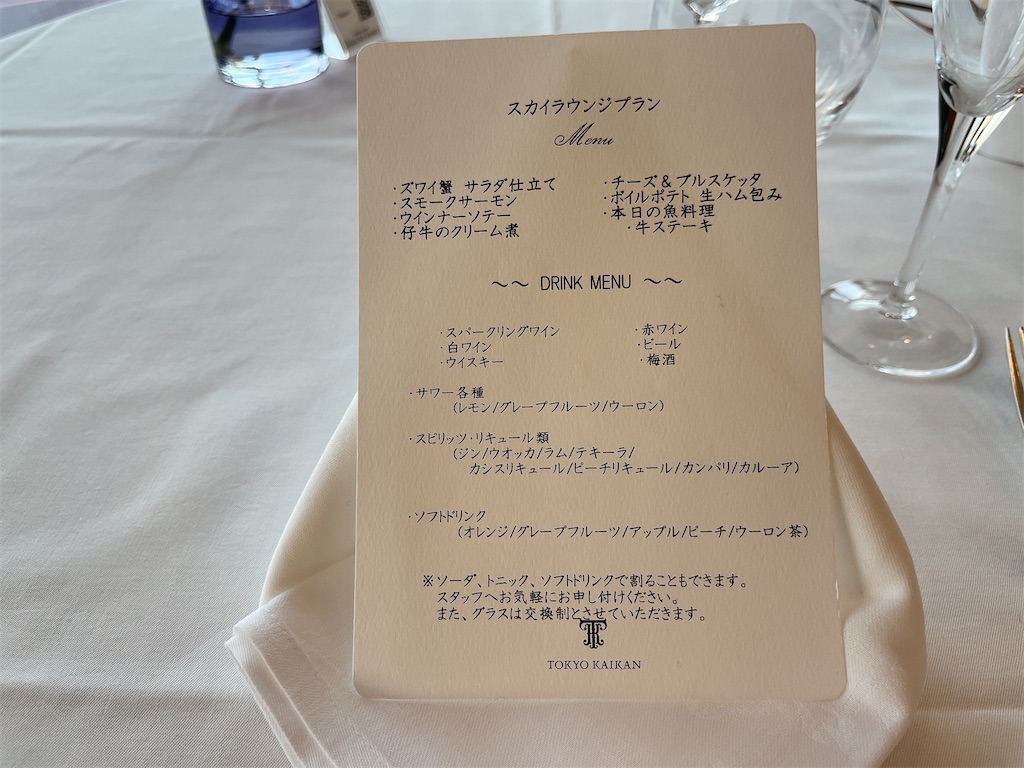 スカイラウンジプラン
Menu
・ズワイ蟹 サラダ仕立て
・スモークサーモン
・ウインナーソテー
・仔牛のクリーム煮
・チーズ＆ブルスケッタ
・ボイルポテト 生ハム包み
・本日の魚料理
・牛ステーキ
～～ DRINK MENU ～～
・スパークリングワイン
・白ワイン
・ウイスキー
・赤ワイン
・ビール
・梅酒
・サワー各種
(レモン/グレープフルーツ/ウーロン)
・スピリッツ・リキュール類
(ジン/ウオッカ/ラム/テキーラ/
カシスリキュール/ピーチリキュール/カンパリ/カルーア)
・ソフトドリンク
(オレンジ/グレープフルーツ/アップル/ピーチ/ウーロン茶)
※ソーダ、トニック、ソフトドリンクで割ることもできます。
スタッフへお気軽にお申し付けください。
また、グラスは交換制とさせていただきます。
TOKYO KAIKAN